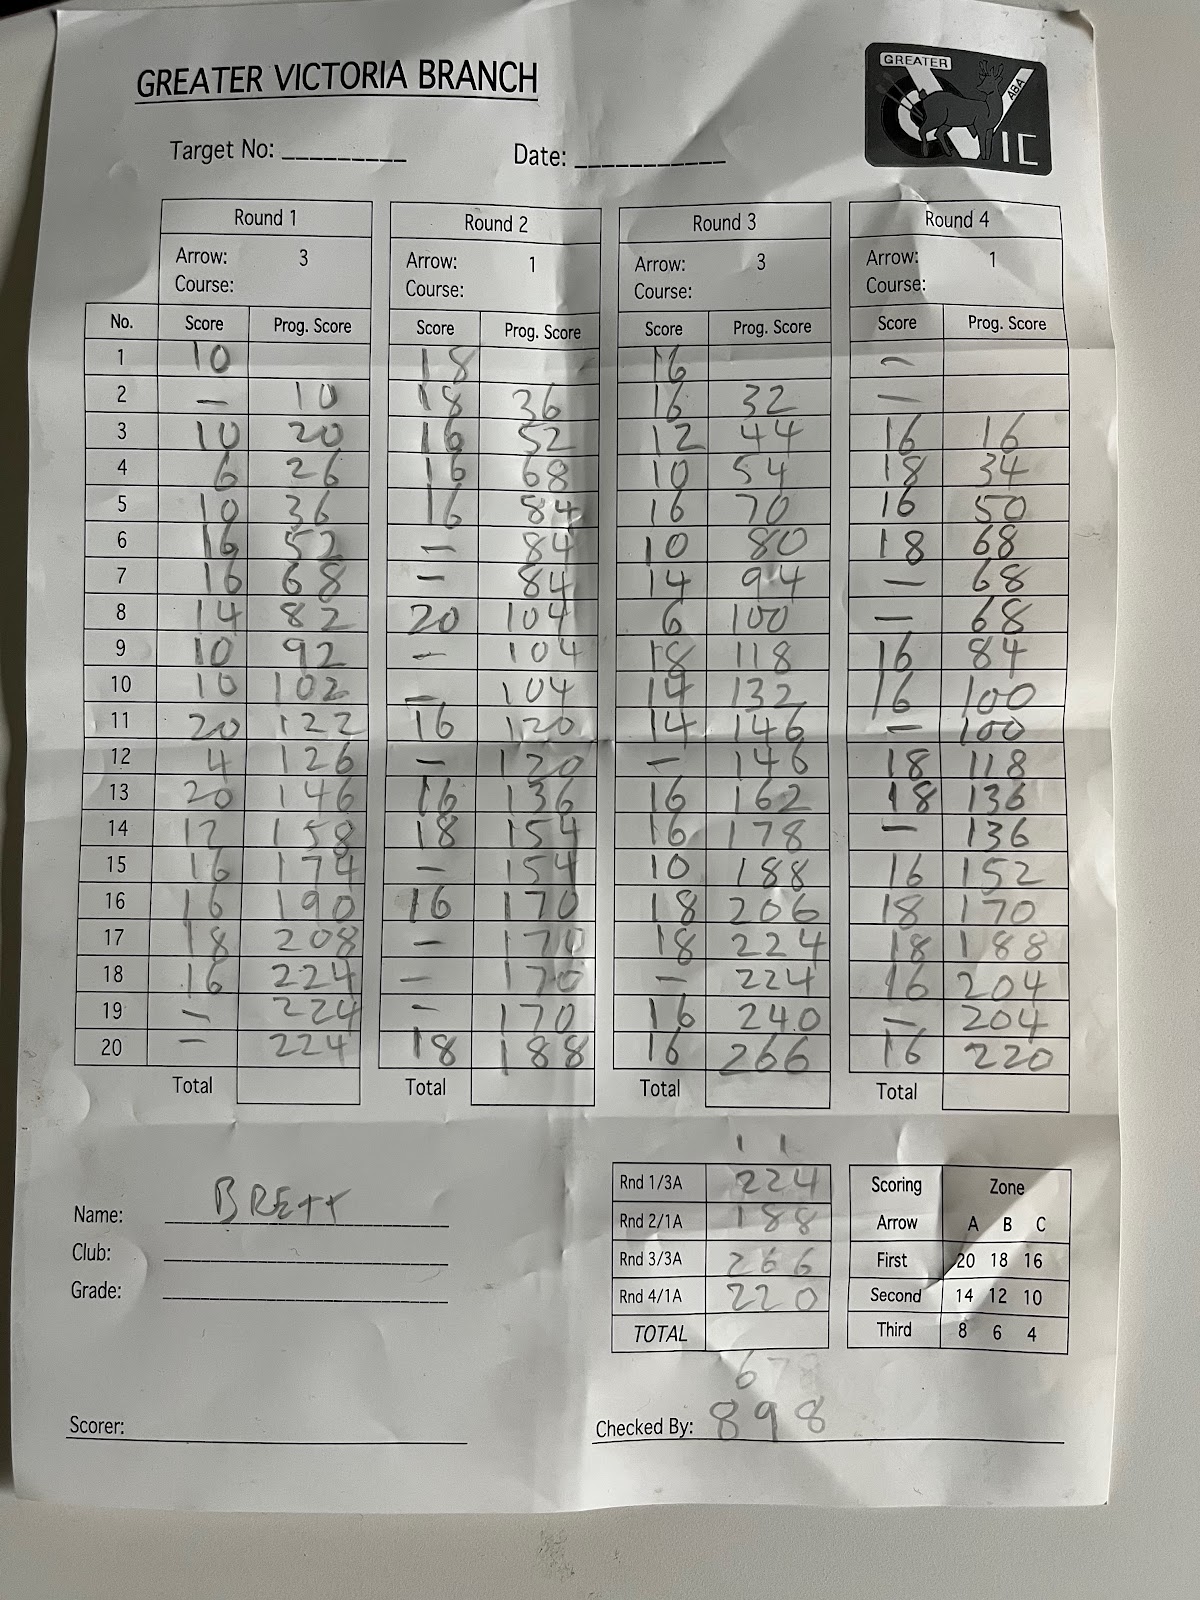 GREATER VICTORIA BRANCH
GREATER
ABA
VIC
Target No: __________ Date: ____________
Round 1 Round 2 Round 3 Round 4
Arrow: 3 Arrow: 1 Arrow: 3 Arrow: 1
Course: Course: Course: Course:
No. Score Prog. Score Score Prog. Score Score Prog. Score Score Prog. Score
1 10 18 16 –
2 – 10 18 36 16 32 –
3 10 20 16 52 12 44 16 16
4 6 26 16 68 10 54 18 34
5 10 36 16 84 16 70 16 50
6 16 52 – 84 10 80 18 68
7 16 68 – 84 14 94 – 68
8 14 82 20 104 6 100 – 68
9 10 92 – 104 18 118 16 84
10 10 102 – 104 14 132 16 100
11 20 122 16 120 14 146 – 100
12 4 126 – 120 – 146 18 118
13 20 146 16 136 16 162 18 136
14 12 158 18 154 16 178 – 136
15 16 174 – 154 10 188 16 152
16 16 190 16 170 18 206 18 170
17 18 208 – 170 18 224 18 188
18 16 224 – 170 – 224 16 204
19 – 224 – 170 16 240 – 204
20 – 224 18 188 16 266 16 220
Total Total Total Total
1 1
Rnd 1/3A 224
Rnd 2/1A 188
Rnd 3/3A 266
Rnd 4/1A 220
TOTAL
678
Scoring Zone
Arrow A B C
First 20 18 16
Second 14 12 10
Third 8 6 4
Name: BRETT
Club:
Grade:
Scorer:
Checked By: 898